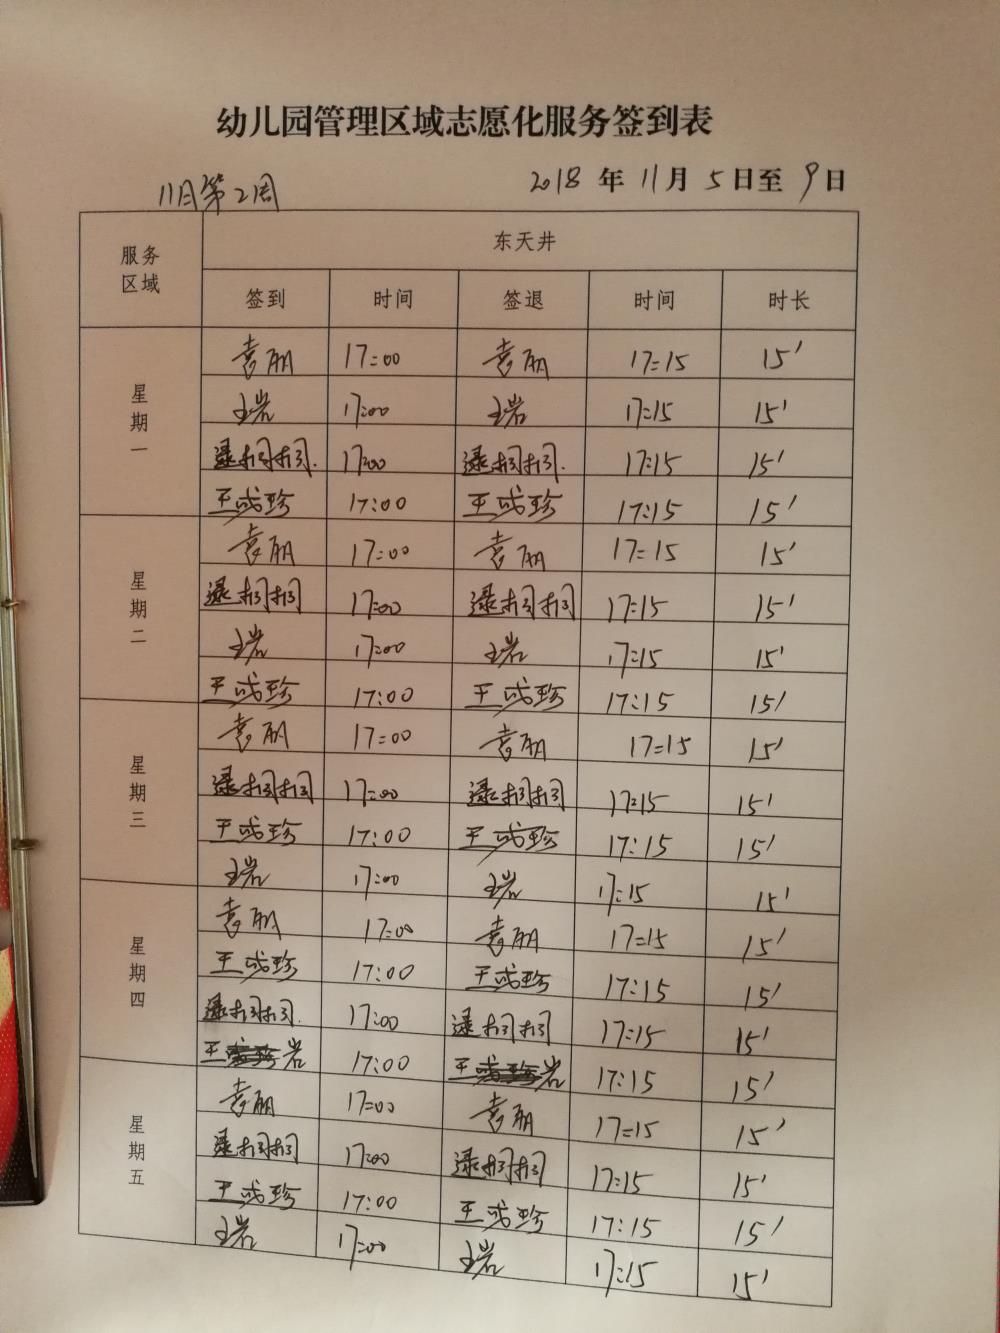 幼儿园管理区域志愿化服务签到表
11月第2周 2018年11月5日至9日
服务区域 东天井
签到 时间 签退 时间 时长
星期一
袁丽 17:00 袁丽 17:15 15'
王岩 17:00 王岩 17:15 15'
17:00 17:15 15'
王成珍 17:00 王成珍 17:15 15'
星期二
袁丽 17:00 袁丽 17:15 15'
17:00 17:15 15'
王岩 17:00 王岩 17:15 15'
王成珍 17:00 王成珍 17:15 15'
星期三
袁丽 17:00 袁丽 17:15 15'
17:00 17:15 15'
王成珍 17:00 王成珍 17:15 15'
王岩 17:00 王岩 17:15 15'
星期四
袁丽 17:00 袁丽 17:15 15'
王成珍 17:00 王成珍 17:15 15'
17:00 17:15 15'
王岩 17:00 王岩 17:15 15'
星期五
袁丽 17:00 袁丽 17:15 15'
17:00 17:15 15'
王成珍 17:00 王成珍 17:15 15'
王岩 17:00 王岩 17:15 15'